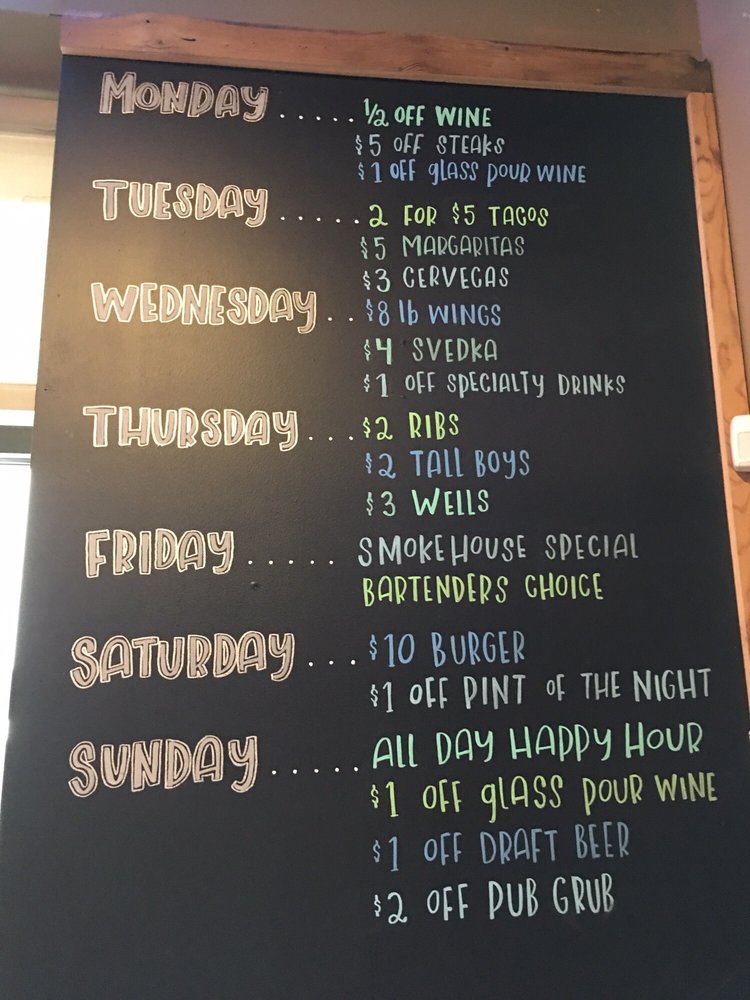 MONDAY.....½ OFF WINE
$5 OFF STEAKS
$1 OFF glASS POUR WINE
TUESDAY.....2 FOR $5 TACOS
$5 MARGARITAS
$3 CERVEGAS
WEDNESDAY..$8 lb WINGS
$4 SVEDKA
$1 OFF SPECIALTY DRINKS
THURSDAY...$2 RIBS
$2 TALL BOYS
$3 WELLS
FRIDAY.....SMOKEHOUSE SPECIAL
BARTENDERS CHOICE
SATURDAY...$10 BURGER
$1 OFF PINT OF THE NIGHT
SUNDAY.....ALL DAY HAPPY HOUR
$1 OFF glASS POUR WINE
$1 OFF DRAFT BEER
$2 OFF PUB GRUB